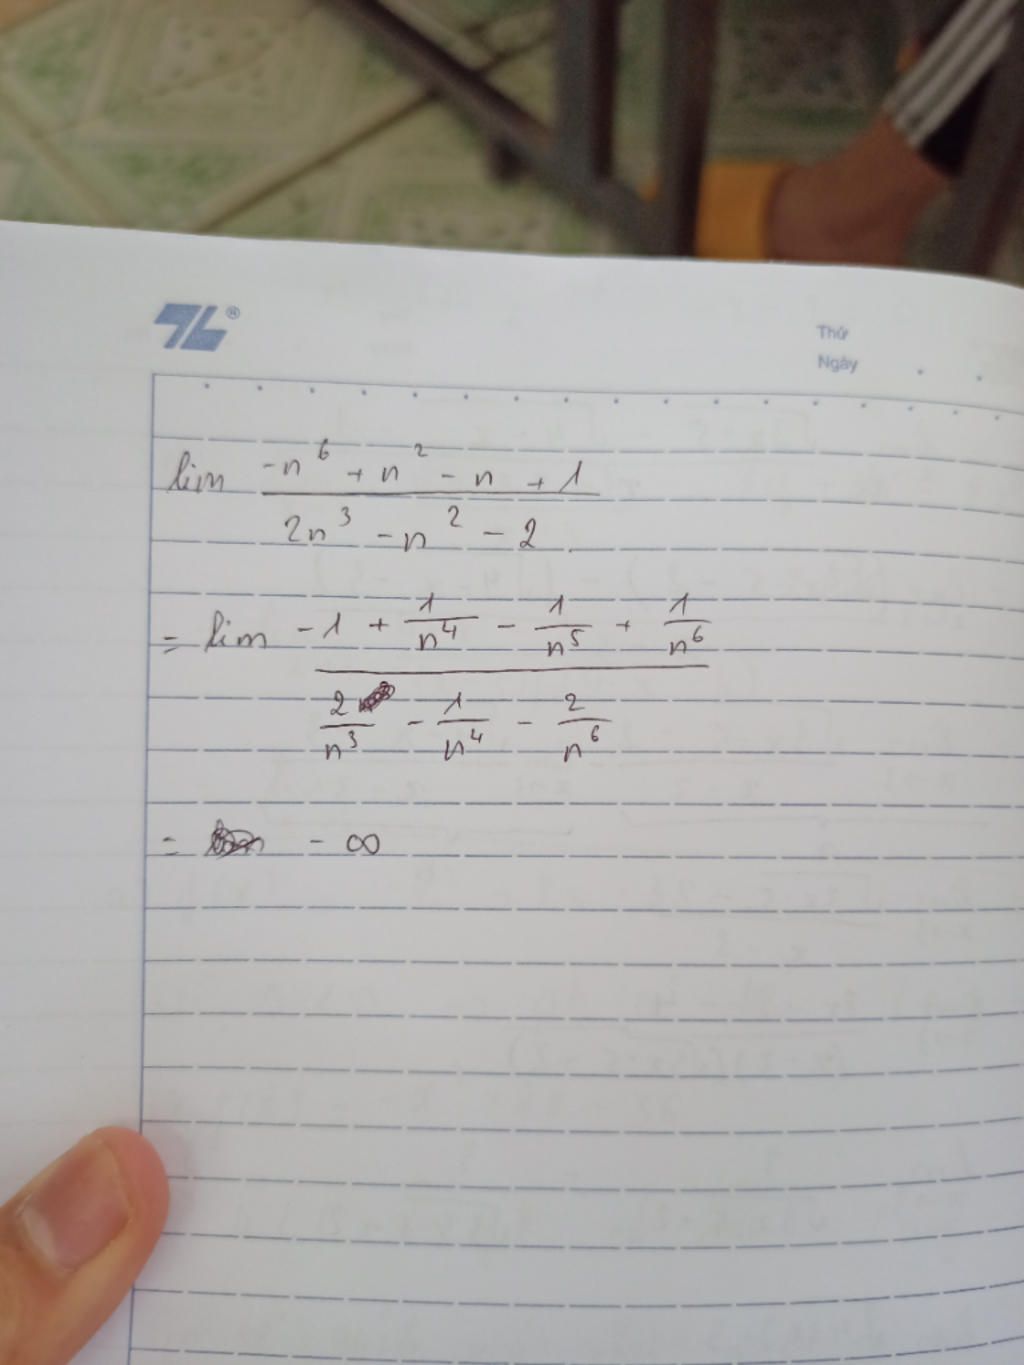 ®
Thứ
Ngày
lim (-n⁶ + n² - n + 1) / (2n³ - n² - 2)
= lim (-1 + 1/n⁴ - 1/n⁵ + 1/n⁶) / (2/n³ - 1/n⁴ - 2/n⁶)
= - ∞